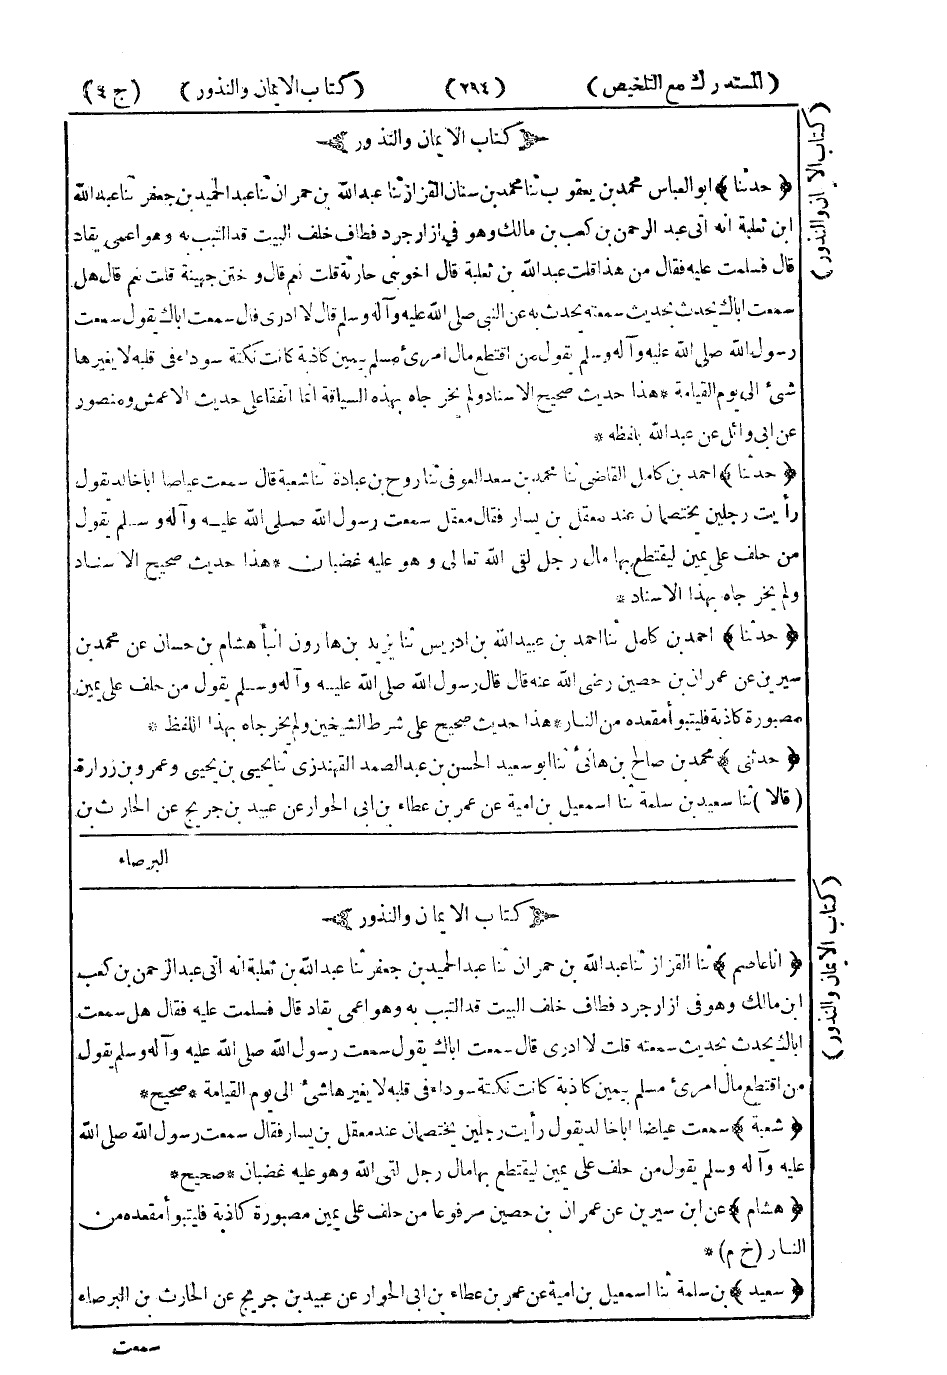 (المستدرك مع التلخيص) (٢٩٤) (كتاب الايمان والنذور) (ج ٤)
(كتاب الايمان والنذور)
كتاب الايمان والنذور
﴿ حدثنا ﴾ ابو العباس محمد بن يعقوب ثنا محمد بن سنان القزاز ثنا عبدالله بن حمران ثنا عبد الحميد بن جعفر ثنا عبدالله
ابن ثعلبة انه اتى عبد الرحمن بن كعب بن مالك وهو في ازار جرد فطاف خلف البيت قد التبب به وهو اعمى يقاد
قال فسلمت عليه فقال من هذا قلت عبدالله بن ثعلبة قال اخو بنى حارثة قلت نعم قال وختن جهينة قلت نعم قال هل
سمعت اباك يحدث بحديث سمعته يحدث به عن النبى صلى الله عليه وآله وسلم قال لا ادرى قال سمعت اباك يقول سمعت
رسول الله صلى الله عليه وآله وسلم يقول من اقتطع مال امرئ مسلم بيمين كاذبة كانت نكتة سوداء فى قلبه لا يغيرها
شئ الى يوم القيامة * هذا حديث صحيح الاسناد ولم يخرجاه بهذه السياقة انما اتفقا على حديث الاعمش ومنصور
عن ابى وائل عن عبدالله بلفظه *
﴿ حدثنا ﴾ احمد بن كامل القاضى ثنا محمد بن سعد العوفى ثنا روح بن عبادة ثنا شعبة قال سمعت عياضا اباخالد يقول
رأيت رجلين يختصمان عند معقل بن يسار فقال معقل سمعت رسول الله صلى الله عليه وآله وسلم يقول
من حلف على يمين ليقتطع بها مال رجل لقى الله تعالى وهو عليه غضبان * هذا حديث صحيح الاسناد
ولم يخرجاه بهذا الاسناد *
﴿ حدثنا ﴾ احمد بن كامل ثنا احمد بن عبيدالله بن ادريس ثنا يزيد بن هارون انبأ هشام بن حسان عن محمد بن
سيرين عن عمران بن حصين رضى الله عنه قال قال رسول الله صلى الله عليه وآله وسلم يقول من حلف على يمين
مصبورة كاذبة فليتبوأ مقعده من النار * هذا حديث صحيح على شرط الشيخين ولم يخرجاه بهذا اللفظ *
﴿ حدثنى ﴾ محمد بن صالح بن هانئ ثنا ابو سعيد الحسن بن عبد الصمد القهندزى ثنا يحيى بن يحيى وعمرو بن زرارة
(قالا) ثنا سعيد بن سلمة ثنا اسمعيل بن امية عن عمر بن عطاء بن ابى الحوار عن عبيد بن جريج عن الحارث بن
البرصاء
(كتاب الايمان والنذور)
كتاب الايمان والنذور
﴿ انا عاصم ﴾ ثنا القزاز ثنا عبدالله بن حمران ثنا عبد الحميد بن جعفر ثنا عبدالله بن ثعلبة انه اتى عبد الرحمن بن كعب
ابن مالك وهو فى ازار جرد فطاف خلف البيت قد التبب به وهو اعمى يقاد قال فسلمت عليه فقال هل سمعت
اباك يحدث بحديث سمعته قلت لا ادرى قال سمعت اباك يقول سمعت رسول الله صلى الله عليه وآله وسلم يقول
من اقتطع مال امرئ مسلم بيمين كاذبة كانت نكتة سوداء فى قلبه لا يغيرها شئ الى يوم القيامة * صحيح *
﴿ شعبة ﴾ سمعت عياضا اباخالد يقول رأيت رجلين يختصمان عند معقل بن يسار فقال سمعت رسول الله صلى الله
عليه وآله وسلم يقول من حلف على يمين ليقتطع بها مال رجل لقى الله وهو عليه غضبان * صحيح *
﴿ هشام ﴾ عن ابن سيرين عن عمران بن حصين مرفوعا من حلف على يمين مصبورة كاذبة فليتبوأ مقعده من
النار (خ م) *
﴿ سعيد ﴾ بن سلمة ثنا اسمعيل بن امية عن عمر بن عطاء بن ابى الحوار عن عبيد بن جريج عن الحارث بن البرصاء
سمعت